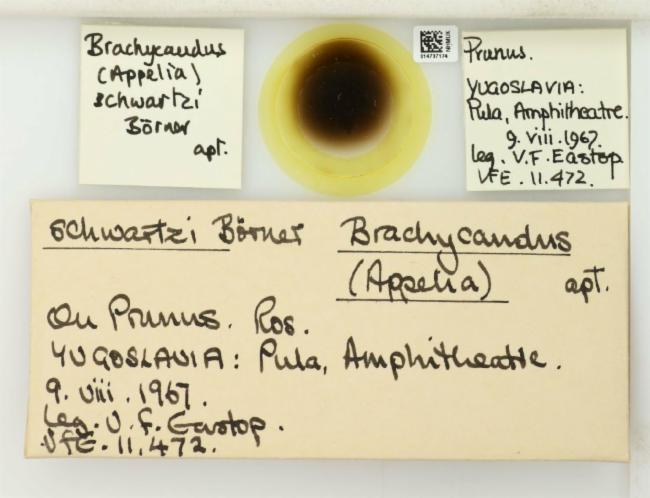 Brachycaudus
(Appelia)
schwartzi
Börner
apt.
NHMUK
014737174
Prunus.
YUGOSLAVIA:
Pula, Amphitheatre.
9.viii.1967.
leg. V.F. Eastop
VFE.11.472.
schwartzi Börner Brachycaudus
(Appelia) apt.
On Prunus. Ros.
YUGOSLAVIA: Pula, Amphitheatre.
9.viii.1967.
leg. V.F. Eastop.
VFE.11.472.